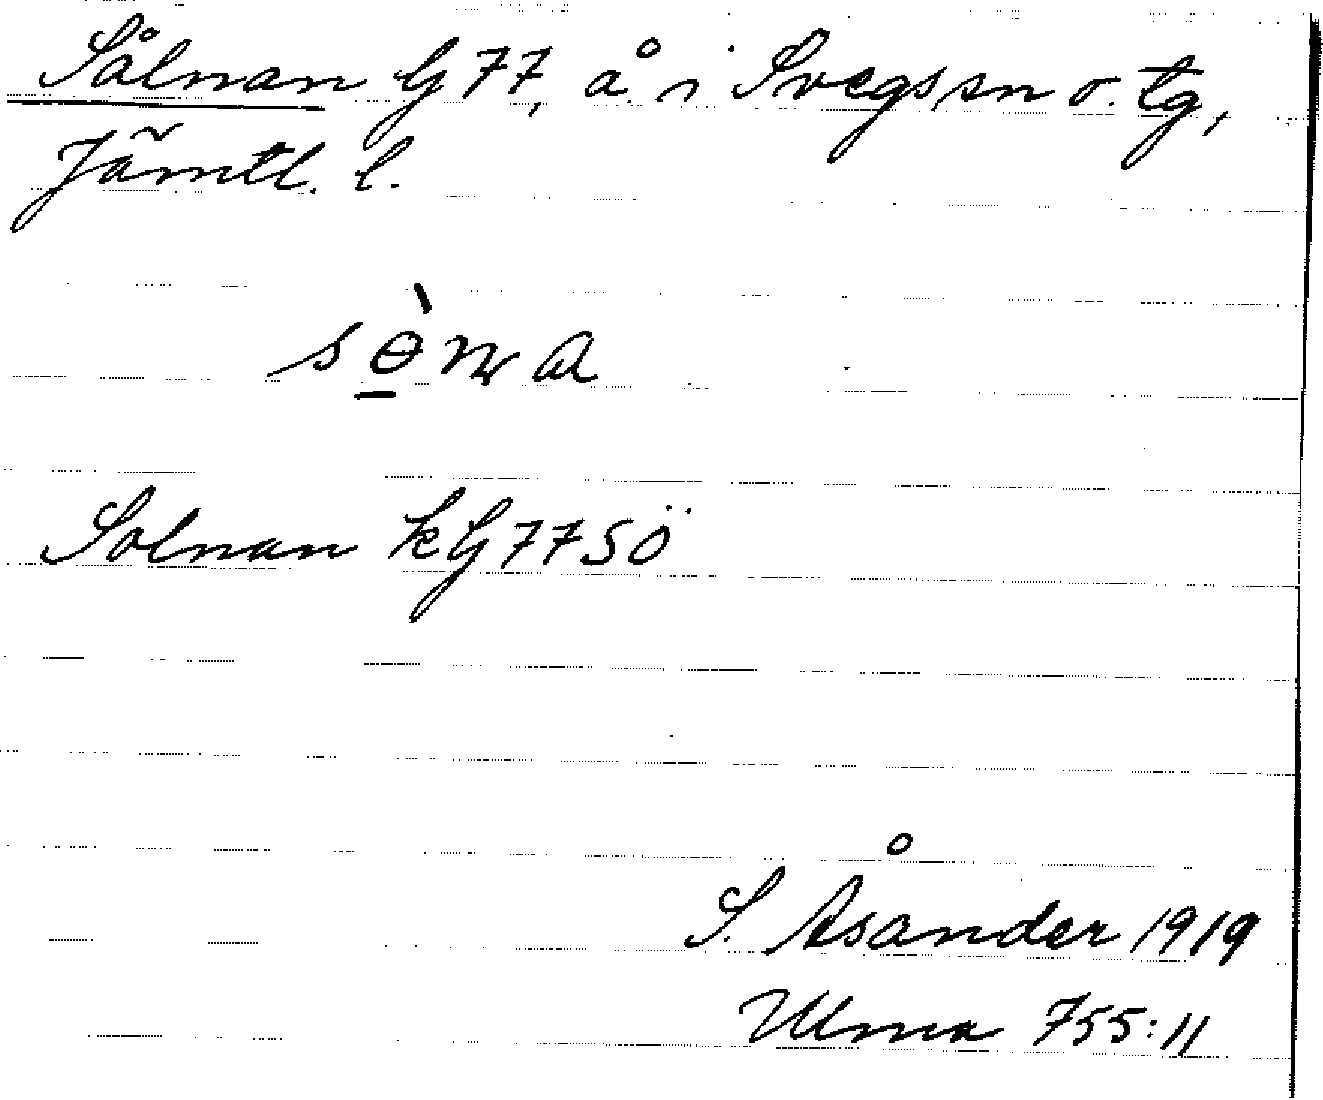 Sålnan G77, å i Svegs sn o. tg,
Jämtl. l.
sө̱̀ṇa
Solnan kG77SÖ
S. Åsander 1919
Ulma 755:11